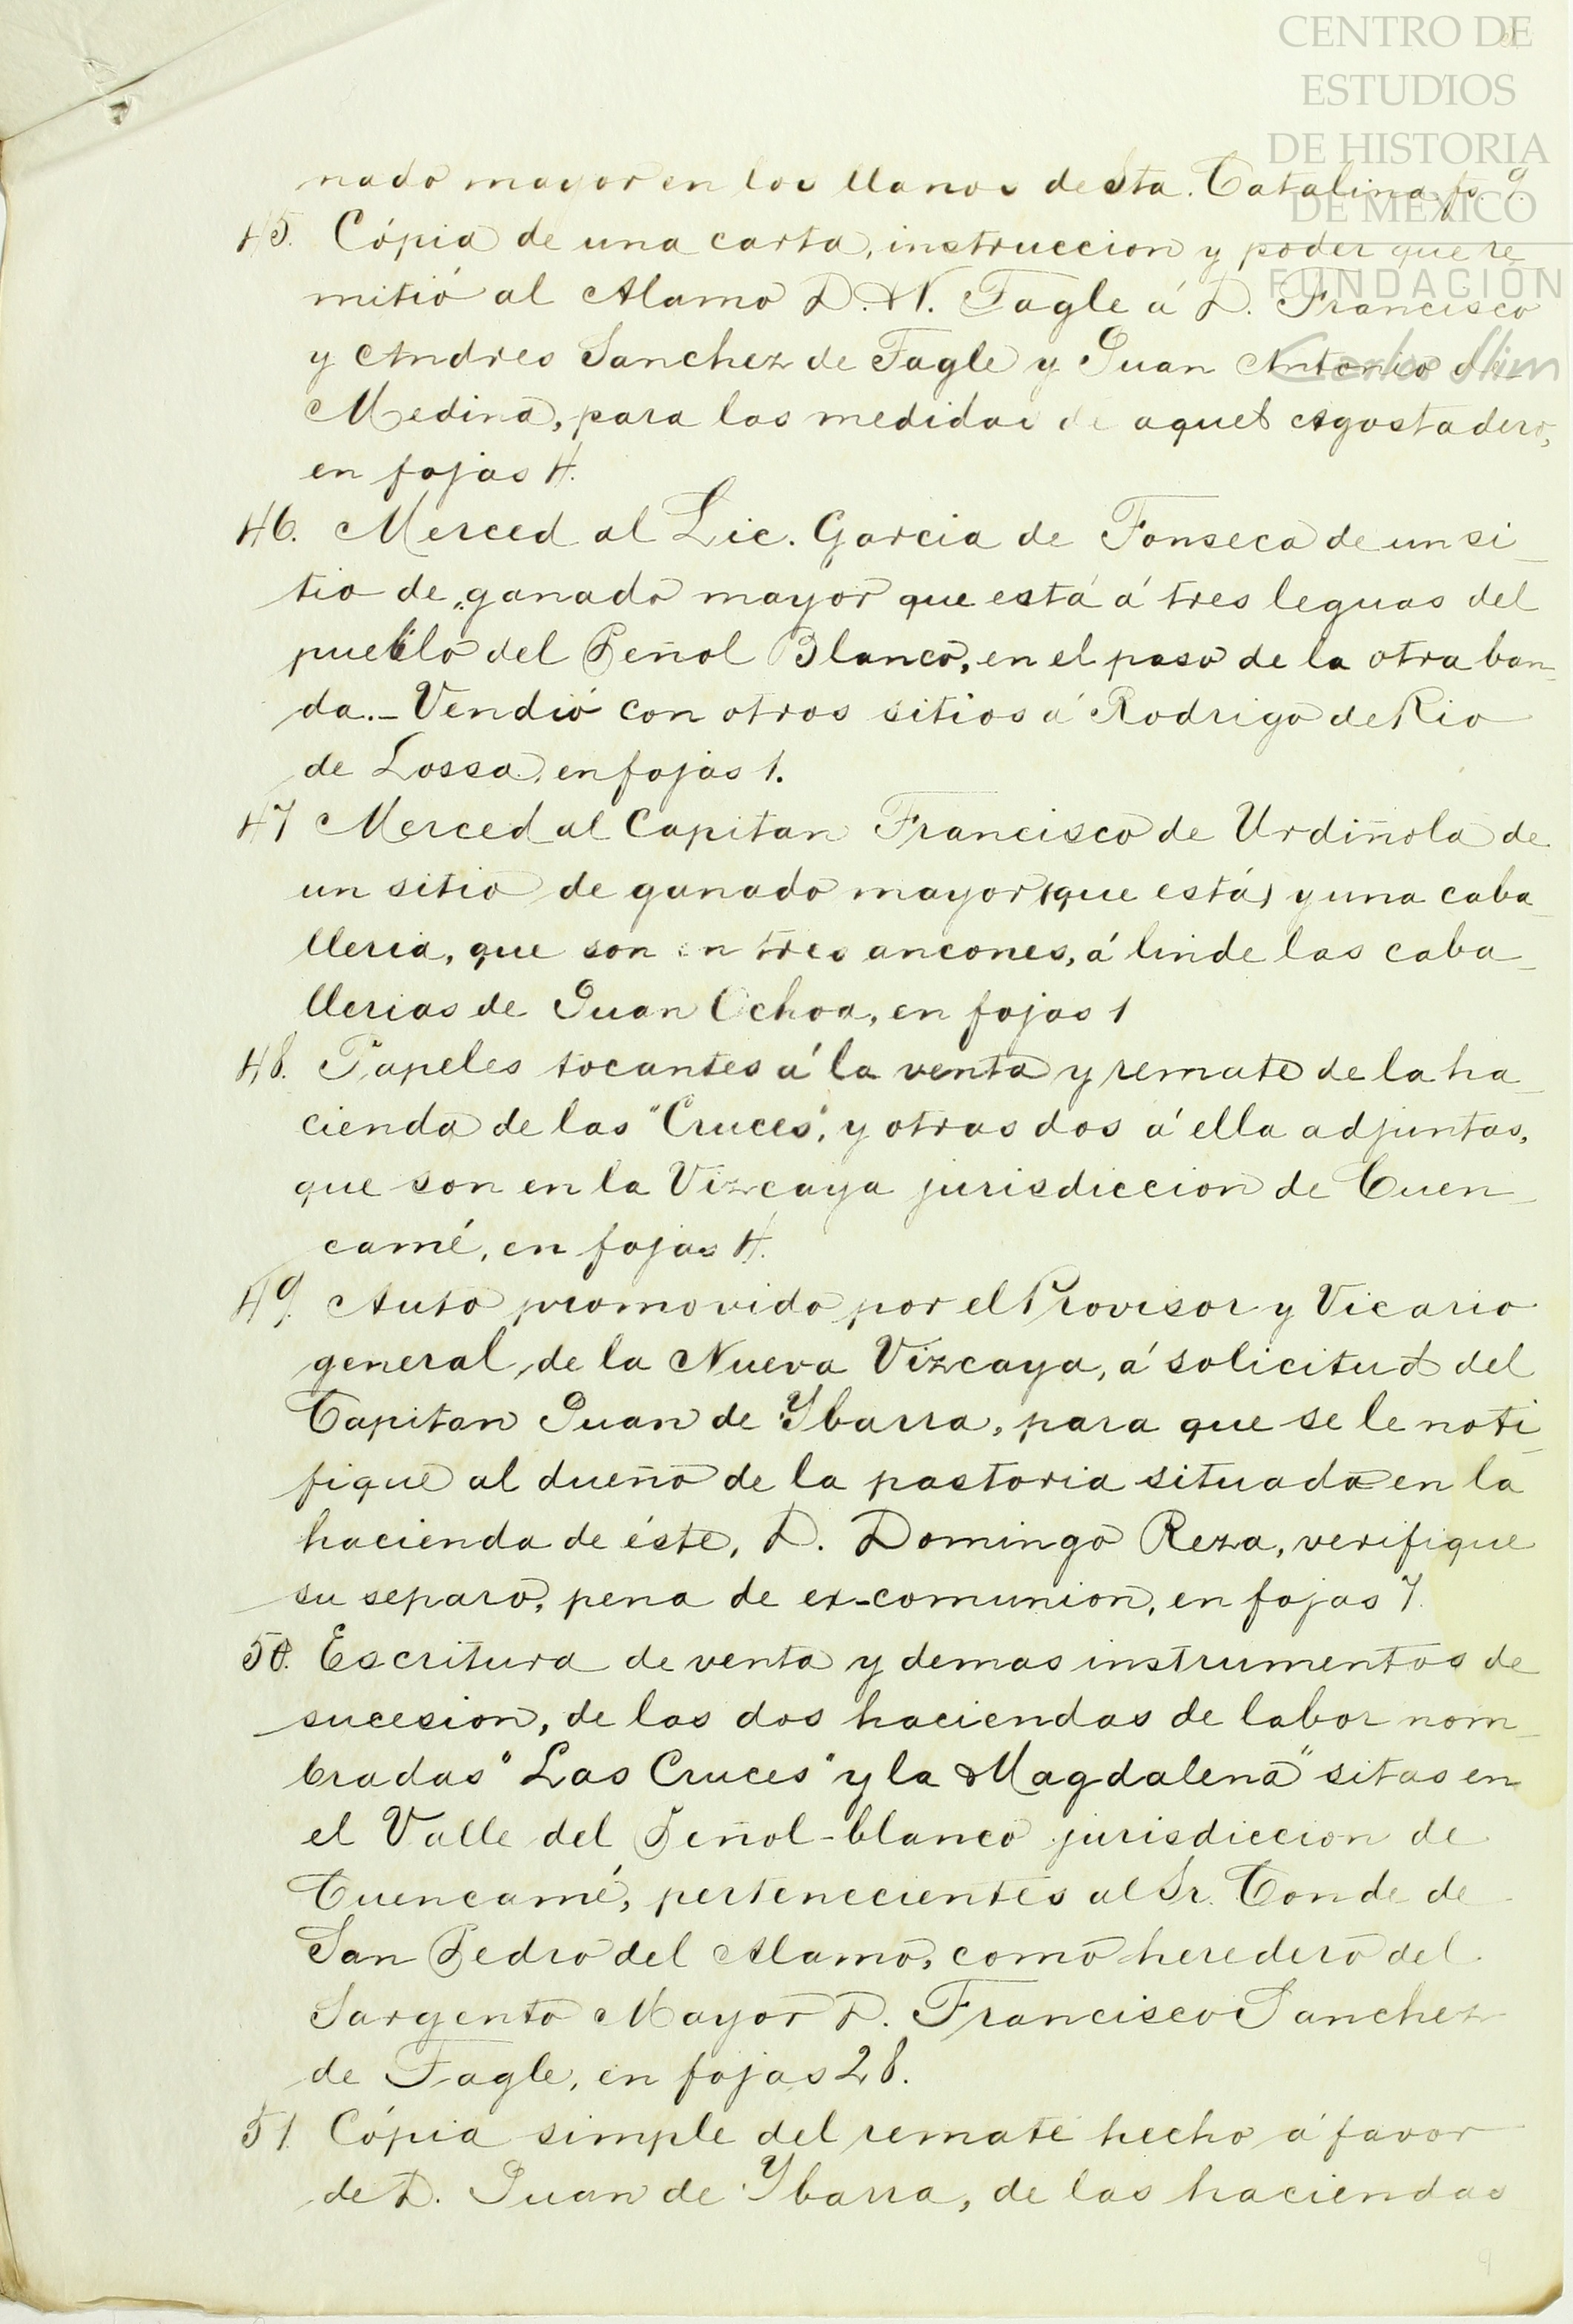 CENTRO DE
ESTUDIOS
DE HISTORIA
DE MÉXICO
FUNDACIÓN
Carlos Slim
nado mayor en los llanos de Sta. Catalina, fs. 9.
45. Cópia de una carta, instruccion y poder que re
mitió al Alamo D. N. Tagle á D. Francisco
y Andres Sanchez de Tagle y Juan Antonio de
Medina, para las medidas de aquel Agostadero,
en fojas 4.
46. Merced al Lic. Garcia de Fonseca de un si
tio de ganado mayor que está á tres leguas del
pueblo del Peñol Blanco, en el paso de la otra ban
da.– Vendió con otros sitios á Rodrigo de Rio
de Lossa, en fojas 1.
47 Merced al Capitan Francisco de Urdiñola de
un sitio de ganado mayor (que está) y una caba
lleria, que son en tres ancones, á linde las caba
llerias de Juan Ochoa, en fojas 1
48. Papeles tocantes á la venta y remate de la ha
cienda de las "Cruces", y otras dos á ella adjuntas,
que son en la Vizcaya jurisdiccion de Cuen
camé, en fojas 4.
49. Auto promovido por el Provisor y Vicario
general de la Nueva Vizcaya, á solicitud del
Capitan Juan de Ybarra, para que se le noti
fique al dueño de la pastoria situada en la
hacienda de éste, D. Domingo Reza, verifique
su separo, pena de ex-comunion, en fojas 7.
50. Escritura de venta y demas instrumentos de
sucesion, de las dos haciendas de labor nom
bradas "Las Cruces" y la Magdalena" sitas en
el Valle del Peñol-blanco jurisdiccion de
Cuencamé, pertenecientes al Sr. Conde de
San Pedro del Alamo, como heredero del
Sargento Mayor D. Francisco Sanchez
de Tagle, en fojas 28.
51. Cópia simple del remate hecho á favor
de D. Juan de Ybarra, de las haciendas
9